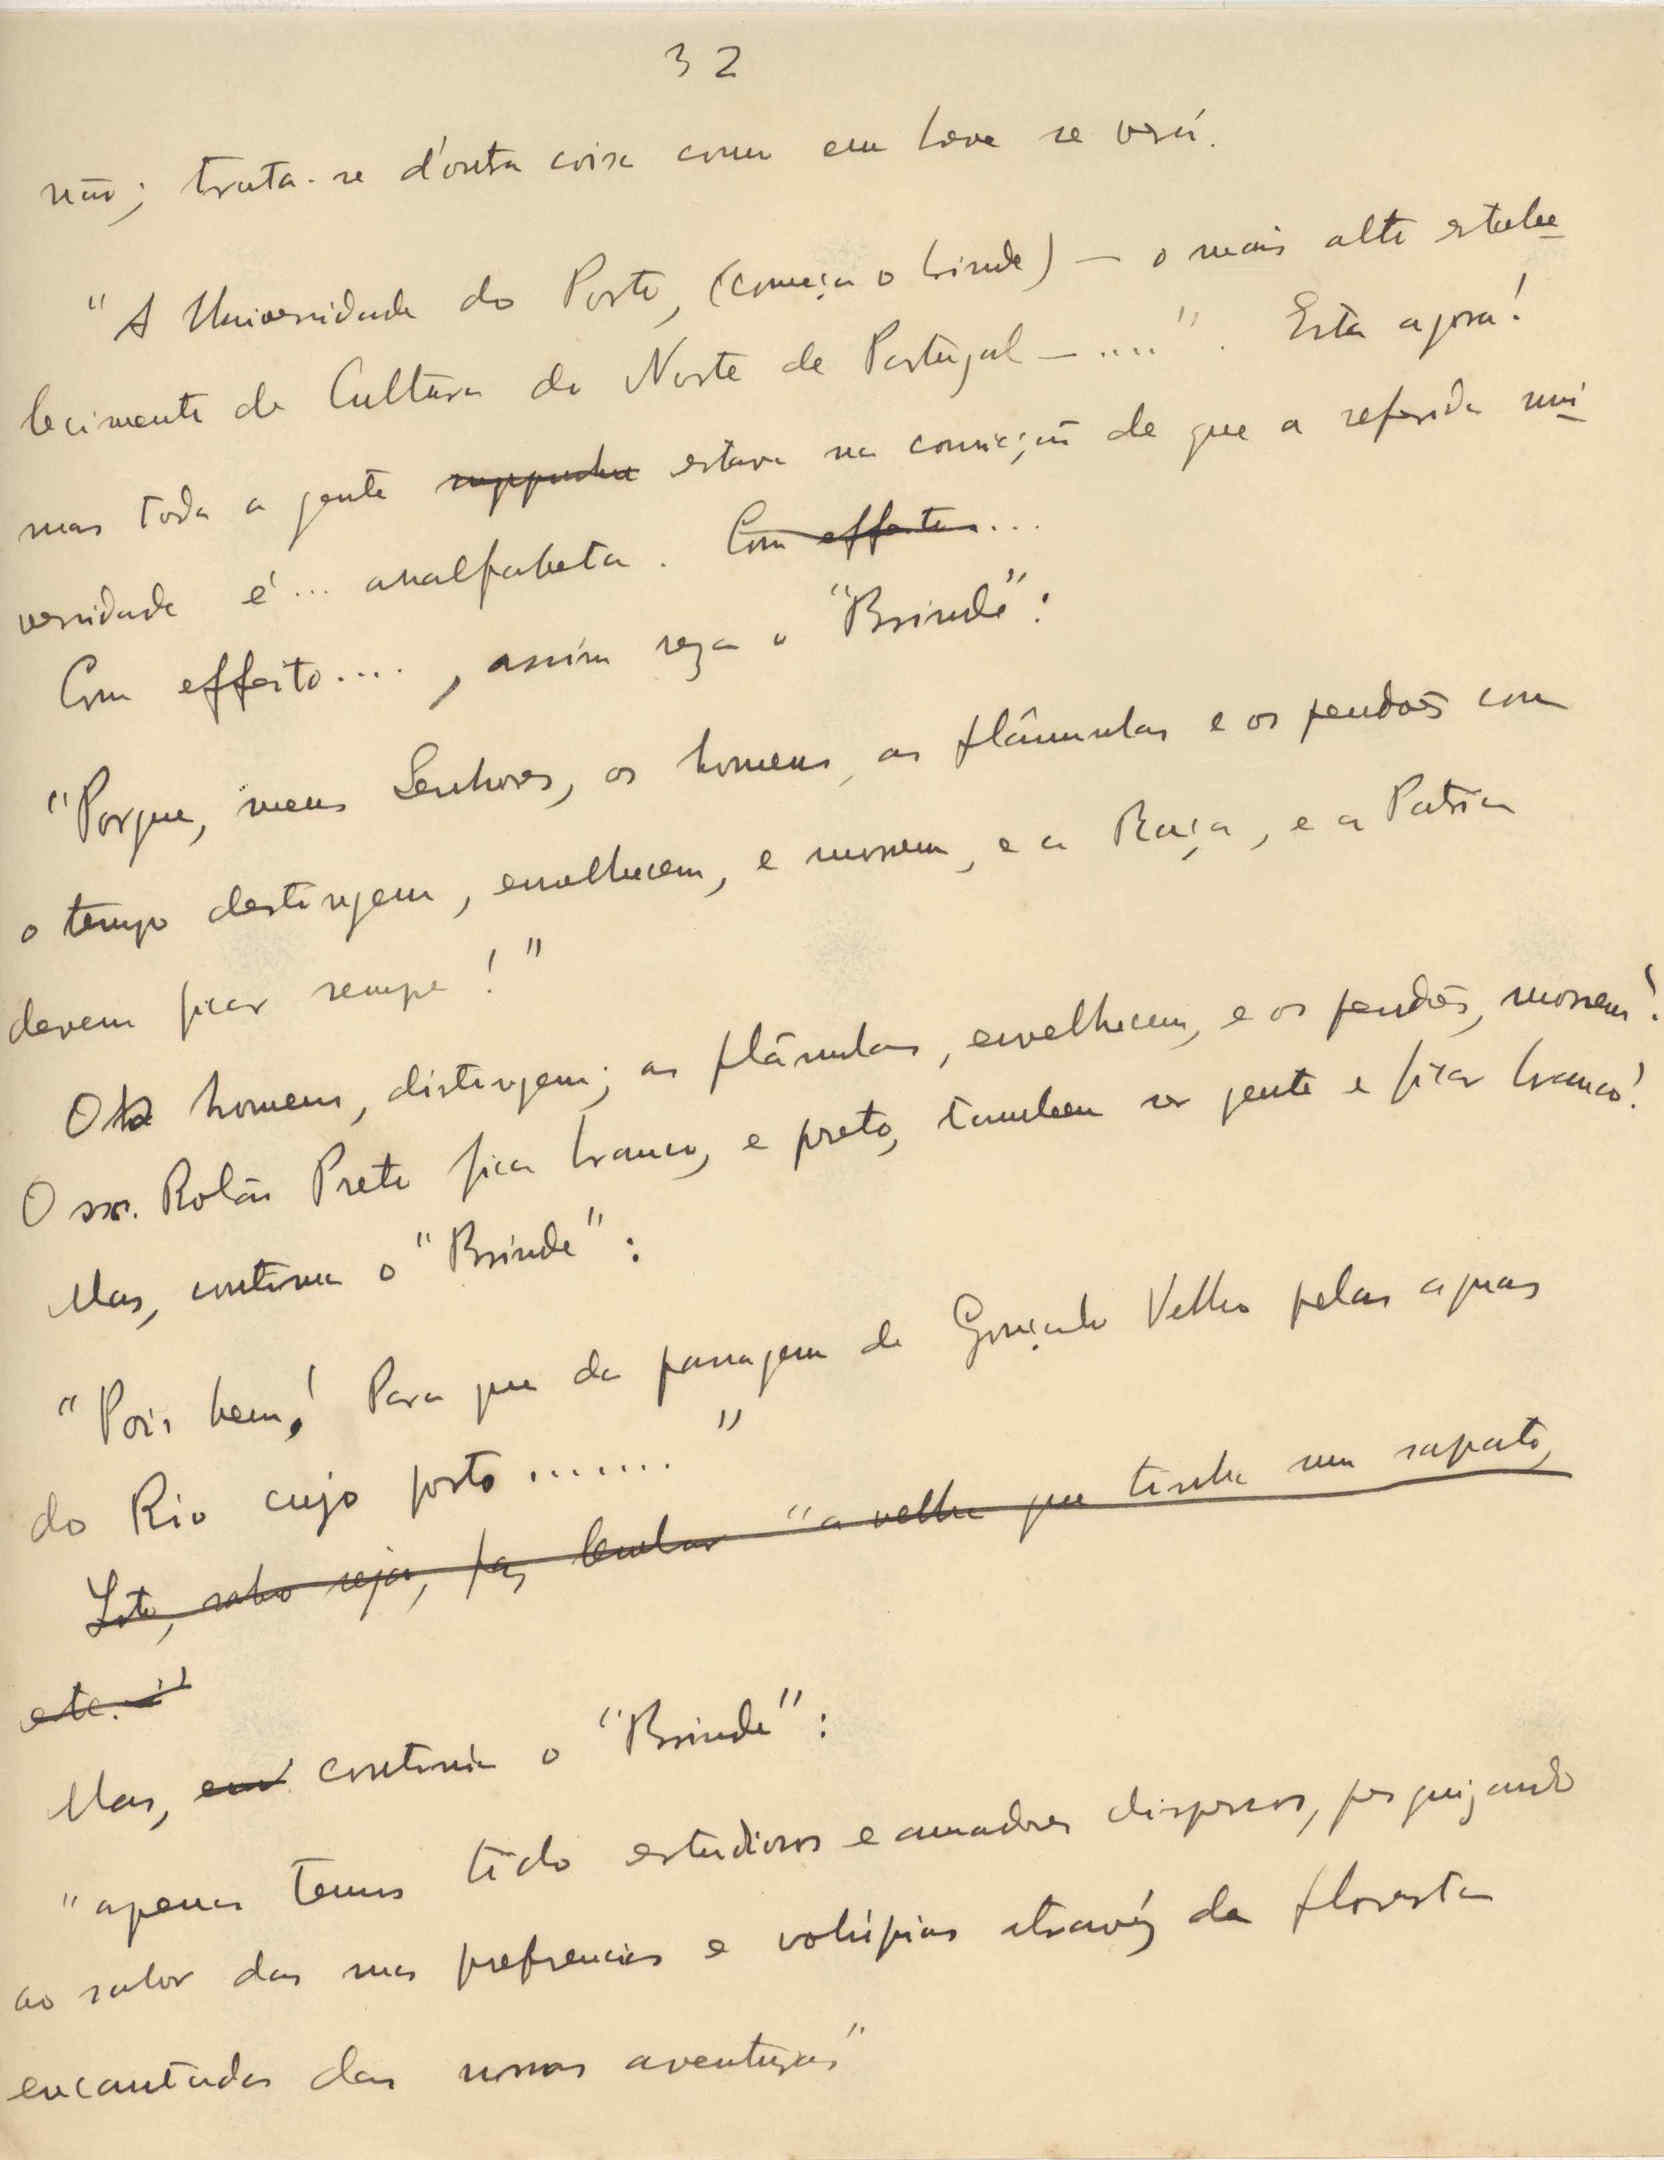 32
não; trata-se d'outra coisa como em breve se verá.
"A Universidade do Porto, (começa o brinde) — o mais alto estabe-
lecimento de Cultura do Norte de Portugal — ....". Esta agora!
mas toda a gente suppunha estava na convicção de que a referida uni-
versidade é... analfabeta. Com effeito...
Com effeito...., assim reza o "Brinde":
"Porque, meus Senhores, os homens, as flâmulas e os pendões com
o tempo destingem, envelhecem, e morrem, e a Raça, e a Patria
devem ficar sempre!"
Os homens, distingem; as flâmulas, envelhecem, e os pendões, morrem!
O snr. Rolão Preto fica branco, e preto, tambem ser gente e ficar branco!
Mas, continua o "Brinde":
"Pois bem! Para que da passagem de Gonçalo Velho pelas aguas
do Rio cujo porto ......."
Isto, salvo seja, faz lembrar "a velha que tinha um sapato,
etc."
Mas, continúa o "Brinde":
"apenas temos tido estudiosos e amadores dispersos, pesquizando
ao sabor das suas preferencias e volúpias atravéz da floresta
encantada das nossas aventuras"